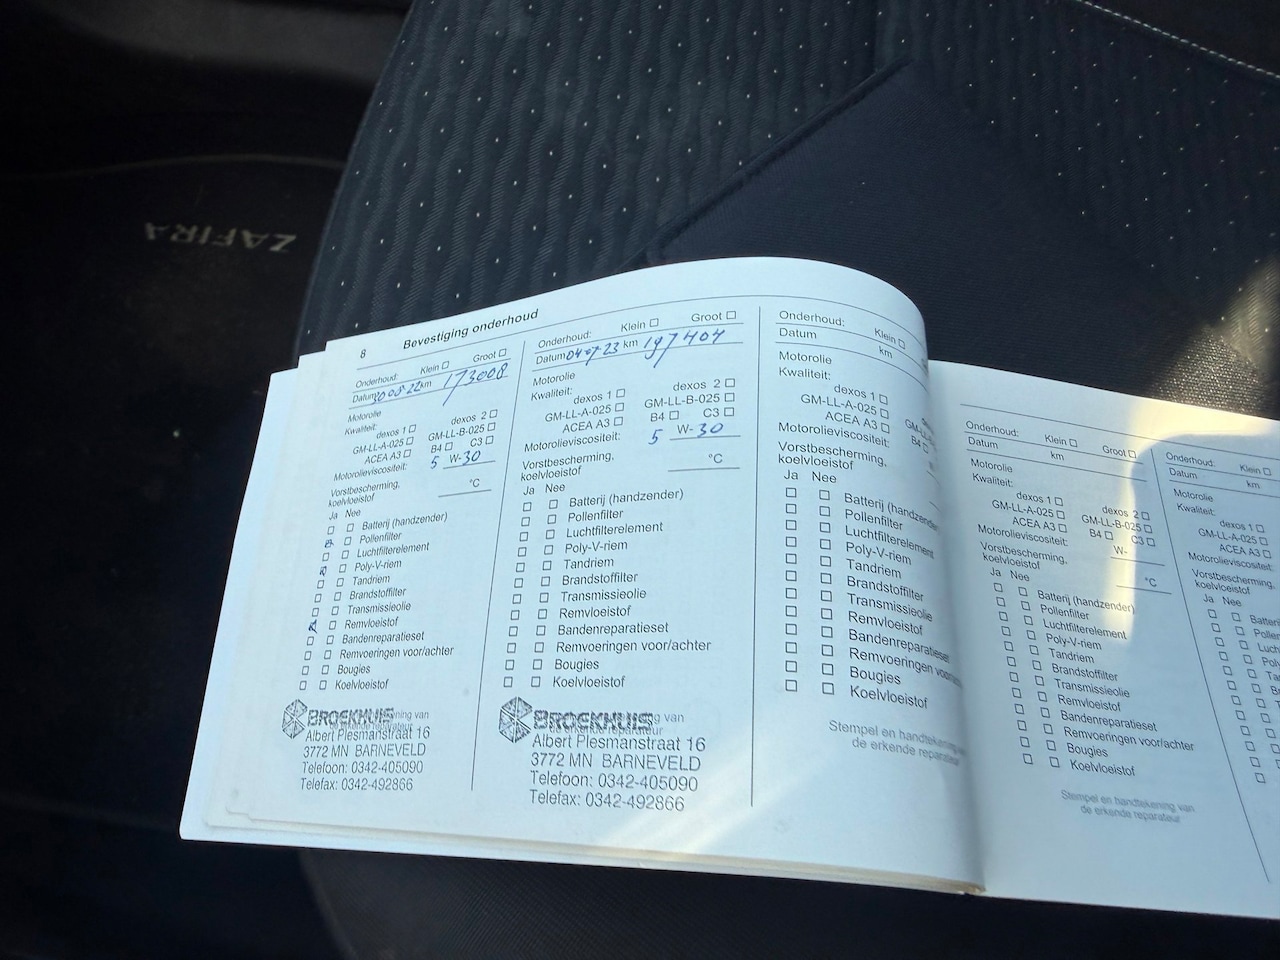 ZAFIRA
8 Bevestiging onderhoud
Onderhoud: Klein ☐ Groot ☐
Datum 30 08 22 km 173008
Motorolie
Kwaliteit:
dexos 1 ☐ dexos 2 ☐
GM-LL-A-025 ☐ GM-LL-B-025 ☐
ACEA A3 ☐ B4 ☐ C3 ☐
Motorolieviscositeit: 5 W-30
Vorstbescherming,
koelvloeistof °C
Ja Nee
☐ ☐ Batterij (handzender)
☒ ☐ Pollenfilter
☐ ☐ Luchtfilterelement
☒ ☐ Poly-V-riem
☐ ☐ Tandriem
☐ ☐ Brandstoffilter
☐ ☐ Transmissieolie
☒ ☐ Remvloeistof
☐ ☐ Bandenreparatieset
☐ ☐ Remvoeringen voor/achter
☐ ☐ Bougies
☐ ☐ Koelvloeistof
BROEKHUIS
Albert Plesmanstraat 16
3772 MN BARNEVELD
Telefoon: 0342-405090
Telefax: 0342-492866
Onderhoud: Klein ☐ Groot ☐
Datum 04 07 23 km 197404
Motorolie
Kwaliteit:
dexos 1 ☐ dexos 2 ☐
GM-LL-A-025 ☐ GM-LL-B-025 ☐
ACEA A3 ☐ B4 ☐ C3 ☐
Motorolieviscositeit: 5 W-30
Vorstbescherming,
koelvloeistof °C
Ja Nee
☐ ☐ Batterij (handzender)
☐ ☐ Pollenfilter
☐ ☐ Luchtfilterelement
☐ ☐ Poly-V-riem
☐ ☐ Tandriem
☐ ☐ Brandstoffilter
☐ ☐ Transmissieolie
☐ ☐ Remvloeistof
☐ ☐ Bandenreparatieset
☐ ☐ Remvoeringen voor/achter
☐ ☐ Bougies
☐ ☐ Koelvloeistof
BROEKHUIS
Albert Plesmanstraat 16
3772 MN BARNEVELD
Telefoon: 0342-405090
Telefax: 0342-492866
Onderhoud: Klein ☐
Datum km
Motorolie
Kwaliteit:
dexos 1 ☐
GM-LL-A-025 ☐
ACEA A3 ☐ B4 ☐
Motorolieviscositeit:
Vorstbescherming,
koelvloeistof
Ja Nee
☐ ☐ Batterij (handzender
☐ ☐ Pollenfilter
☐ ☐ Luchtfilterelement
☐ ☐ Poly-V-riem
☐ ☐ Tandriem
☐ ☐ Brandstoffilter
☐ ☐ Transmissieolie
☐ ☐ Remvloeistof
☐ ☐ Bandenreparatieset
☐ ☐ Remvoeringen
☐ ☐ Bougies
☐ ☐ Koelvloeistof
Stempel en handtekening
de erkende reparateur
Onderhoud: Klein ☐ Groot ☐
Datum km
Motorolie
Kwaliteit:
dexos 1 ☐ dexos 2 ☐
GM-LL-A-025 ☐ GM-LL-B-025 ☐
ACEA A3 ☐ B4 ☐ C3 ☐
Motorolieviscositeit: W-
Vorstbescherming,
koelvloeistof °C
Ja Nee
☐ ☐ Batterij (handzender)
☐ ☐ Pollenfilter
☐ ☐ Luchtfilterelement
☐ ☐ Poly-V-riem
☐ ☐ Tandriem
☐ ☐ Brandstoffilter
☐ ☐ Transmissieolie
☐ ☐ Remvloeistof
☐ ☐ Bandenreparatieset
☐ ☐ Remvoeringen voor/achter
☐ ☐ Bougies
☐ ☐ Koelvloeistof
Stempel en handtekening van
de erkende reparateur
Onderhoud: Klein ☐
Datum km
Motorolie
Kwaliteit:
dexos 1 ☐
GM-LL-A-025 ☐
ACEA A3 ☐
Motorolieviscositeit:
Vorstbescherming,
koelvloeistof
Ja Nee